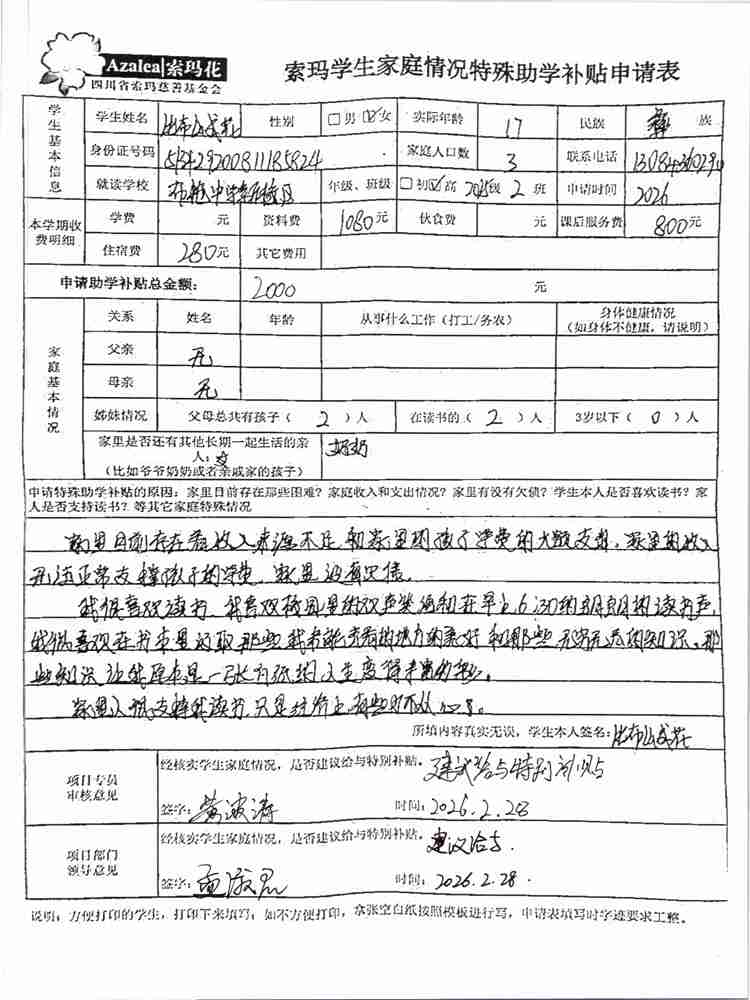 Azalea 索玛花
四川省索玛慈善基金会
索玛学生家庭情况特殊助学补贴申请表
学生基本信息
学生姓名 比布 性别 □男 ☑女 实际年龄 17 民族 彝 族
身份证号码 家庭人口数 3 联系电话
就读学校 布拖中学 校区 年级、班级 □初 ☑高 2025级 2 班 申请时间 2026
本学期收费明细
学费 元 资料费 1080元 伙食费 元 课后服务费 800元
住宿费 280元 其它费用
申请助学补贴总金额: 2000 元
家庭基本情况
关系 姓名 年龄 从事什么工作(打工/务农) 身体健康情况
(如身体不健康,请说明)
父亲 无
母亲 无
姊妹情况 父母总共有孩子( 2 )人 在读书的( 2 )人 3岁以下( 0 )人
家里是否还有其他长期一起生活的亲 奶奶
人:
(比如爷爷奶奶或者亲戚家的孩子)
申请特殊助学补贴的原因:家里目前存在那些困难?家庭收入和支出情况?家里有没有欠债?学生本人是否喜欢读书?家
人是否支持读书?等其它家庭特殊情况
家里目前存在着收入来源不足和家里两孩子学费的大额支出,家里的收入
无法正常支撑孩子的学费,家里没有欠债。
我很喜欢读书,我喜欢校园里的欢声笑语和在早上6:30的朗朗的读书声,
我很喜欢在书本里汲取那些我未能去看的地方的美好和那些无穷无尽的知识,那
些知识让我原本是一张白纸的人生变得丰富
家里人很支持我读书,只是经济上有些力不从心了。
所填内容真实无误,学生本人签名:比布
项目专员
审核意见
经核实学生家庭情况,是否建议给与特别补贴。建议给与特别补贴
签字:黄波涛 时间:2026.2.28
项目部门
领导意见
经核实学生家庭情况,是否建议给与特别补贴。建议给与.
签字: 时间:2026.2.28.
说明:方便打印的学生,打印下来填写;如不方便打印,拿张空白纸按照模板进行写,申请表填写时字迹要求工整。